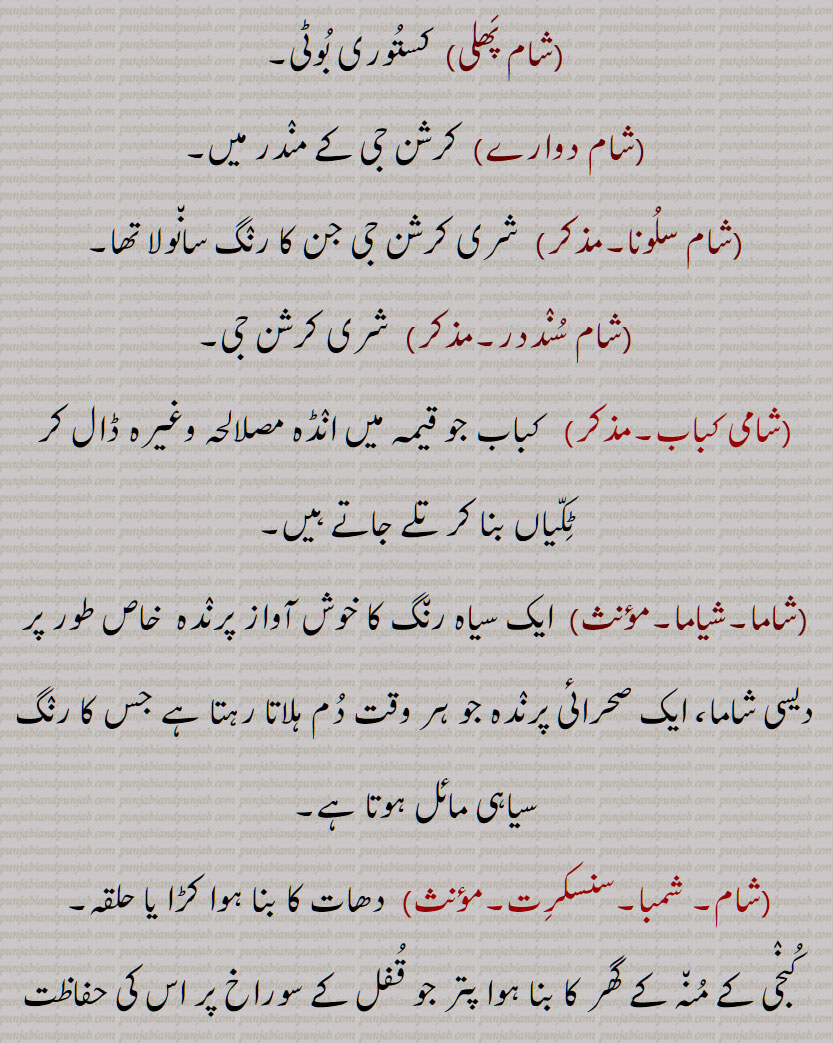 (شام پَھلی) کستُوری بُوٹی۔
(شام دوارے) کرشن جی کے منْدر میں۔
(شام سلُونا۔مذکر) شری کرشن جی جن کا رنْگ سانْولا تھا۔
(شام سُنْددر۔مذکر) شری کرشن جی۔
(شامی کباب۔مذکر) کباب جو قیمہ میں انْڈہ مصلالحہ وغیرہ ڈال کر
ٹِکّیاں بنا کر تلے جاتے ہیں۔
(شاما۔شیاما۔مؤنث) ایک سیاہ رنْگ کا خوش آواز پرنْدہ خاص طور پر
دیسی شاما، ایک صحرائی پرنْدہ جو ہر وقت دُم ہلاتا رہتا ہے جس کا رنْگ
سیاہی مائل ہوتا ہے۔
(شام۔ شمبا۔سنسکرِت۔مؤنث) دھات کا بنا ہوا کڑا یا حلقہ۔
کُنْجی کے مُنْہ کے گھر کا بنا ہوا پتر جو قُفل کے سوراخ پر اس کی حفاظت